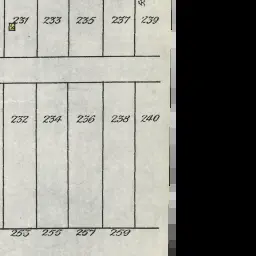 231 233 235 237 239
232 234 236 238 240
253 255 257 259